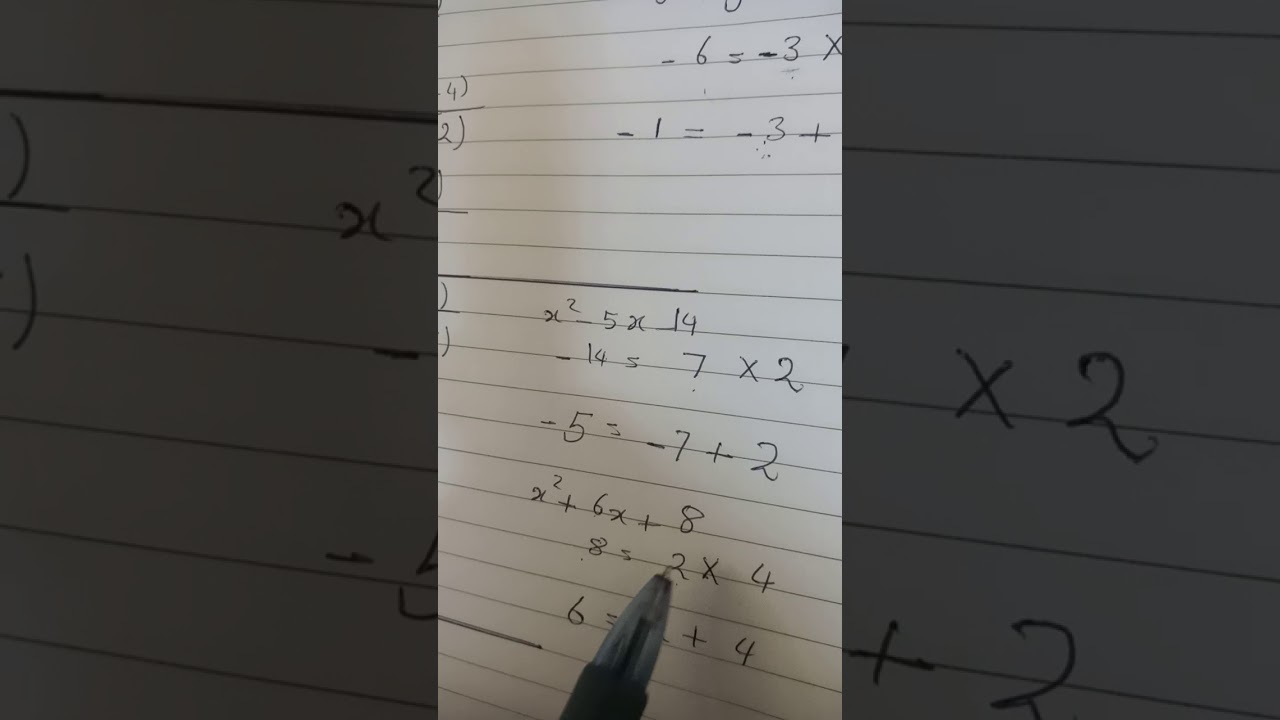 - 6 = -3 X
4)
2)
- 1 = -3 +
)
)
x² - 5x 14
)
- 14 = 7 X 2
-5 = -7 + 2
x² + 6x + 8
8 = 2 X 4
6 = + 4